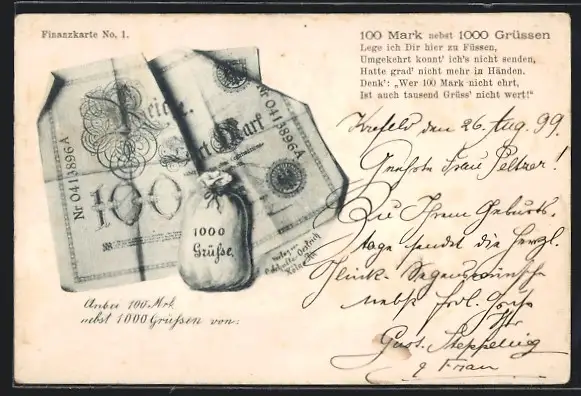 Finanzkarte No. 1.
100 Mark nebst 1000 Grüssen
Lege ich Dir hier zu Füssen,
Umgekehrt konnt' ich's nicht senden,
Hatte grad' nicht mehr in Händen.
Denk': „Wer 100 Mark nicht ehrt,
Ist auch tausend Grüss' nicht wert!“
Reichs
Mark
Nr 0413896A
0413896A
100
1000
Grüsse.
Anbei 100 Mrk.
nebst 1000 Grüssen von:
Krefeld den 26. Aug. 99.
Geehrte Frau Peltzer!
Zu Ihrem Geburts-
tage sendet die herzl.
Glück- Segenswünsche
nebst frdl. Gruss
Ihr
Gust.
& Frau